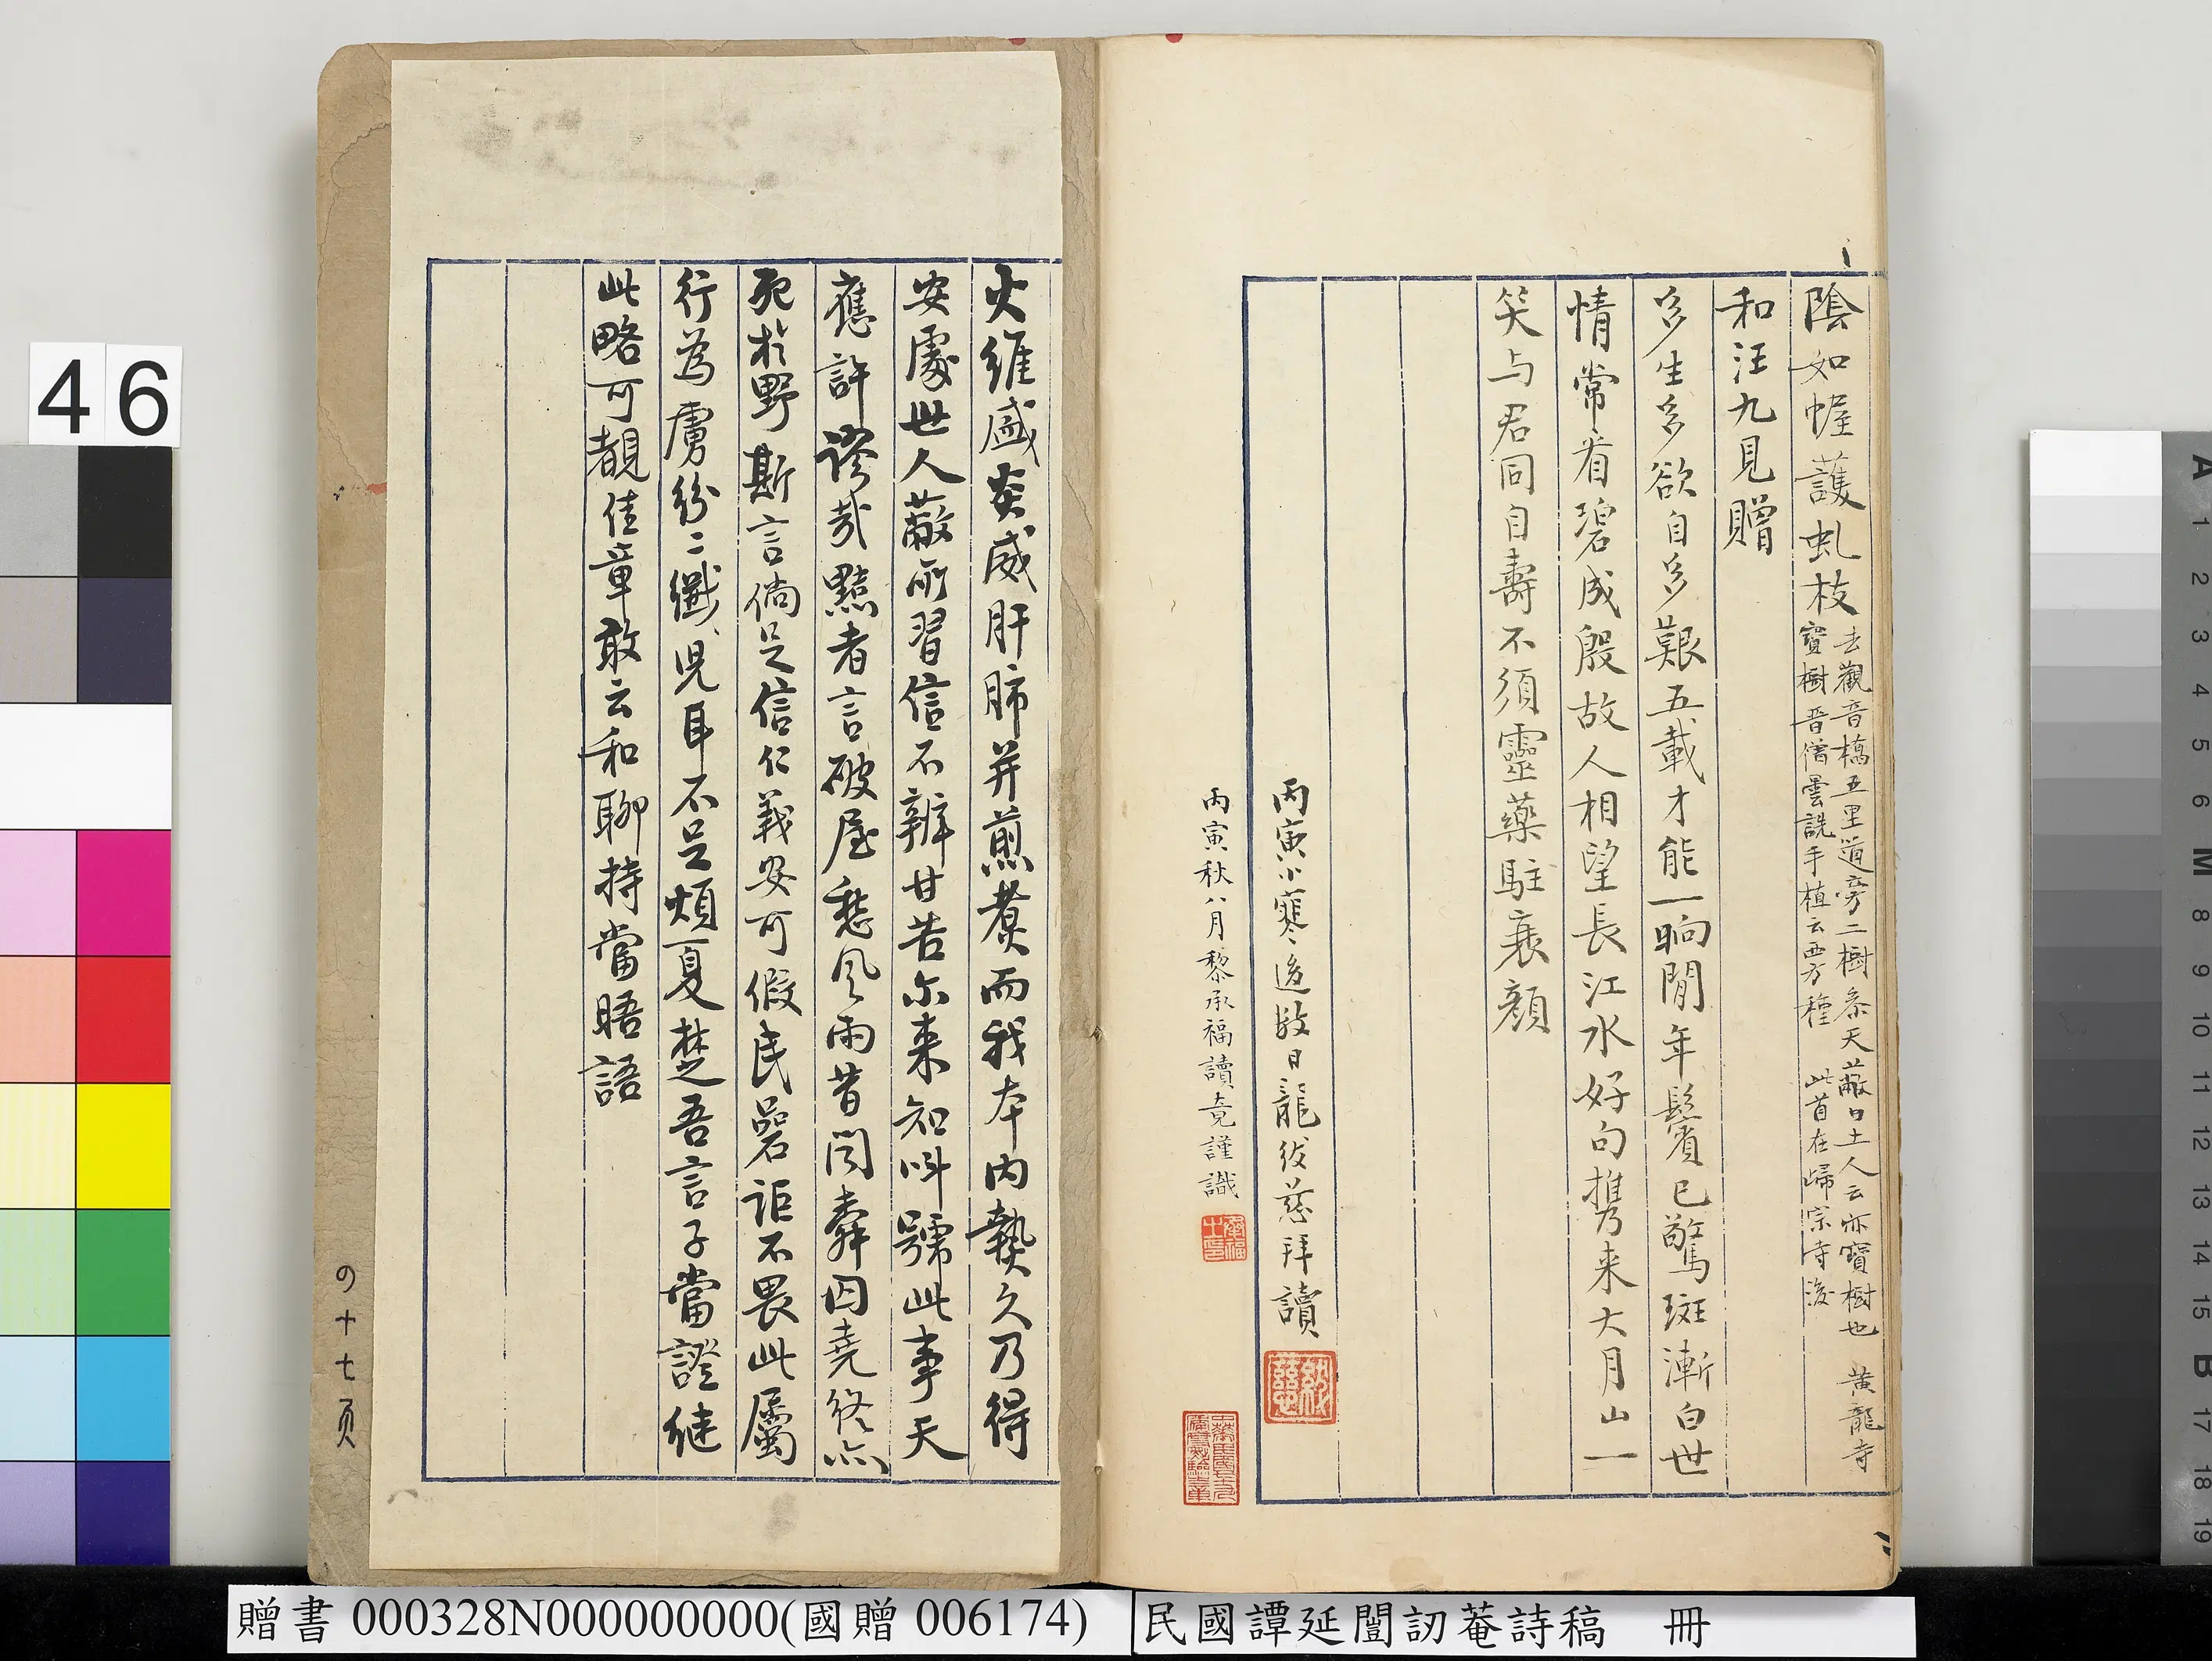 陰如幄護虬枝
去觀音橋五里道旁二樹參天蔽日土人云亦寶樹也 黃龍寺
寶樹晋僧曇詵手植云西方種 此首在歸宗寺後
和汪九見贈
多生多欲自多艱五載才能一晌閒年鬢已驚斑漸白世
情常看碧成殷故人相望長江水好句携来大月山一
笑与君同自壽不須靈藥駐衰顏
丙寅小寒後
日龍紱慈拜讀
丙寅秋八月黎承福讀竟謹識
火維盛炎威肝肺并煎煑而我本内熱久乃得
安處世人蔽所習信不辨甘苦尓来知叫號此事天
應許謬哉黠者言破屋愁風雨昔聞舜囚堯終亦
死於野斯言倘足信仁義安可假民碞詎不畏此屬
行為虜紛〻纖兒耳不足煩夏楚吾言子當證继
此略可覩佳章敢云和聊持當晤語
の十七页
46
贈書 000328N000000000(國贈 006174)
民國譚延闓訒菴詩稿 冊
A 1 2 3 4 5 6 M 8 9 10 11 12 13 14 15 B 17 18 19